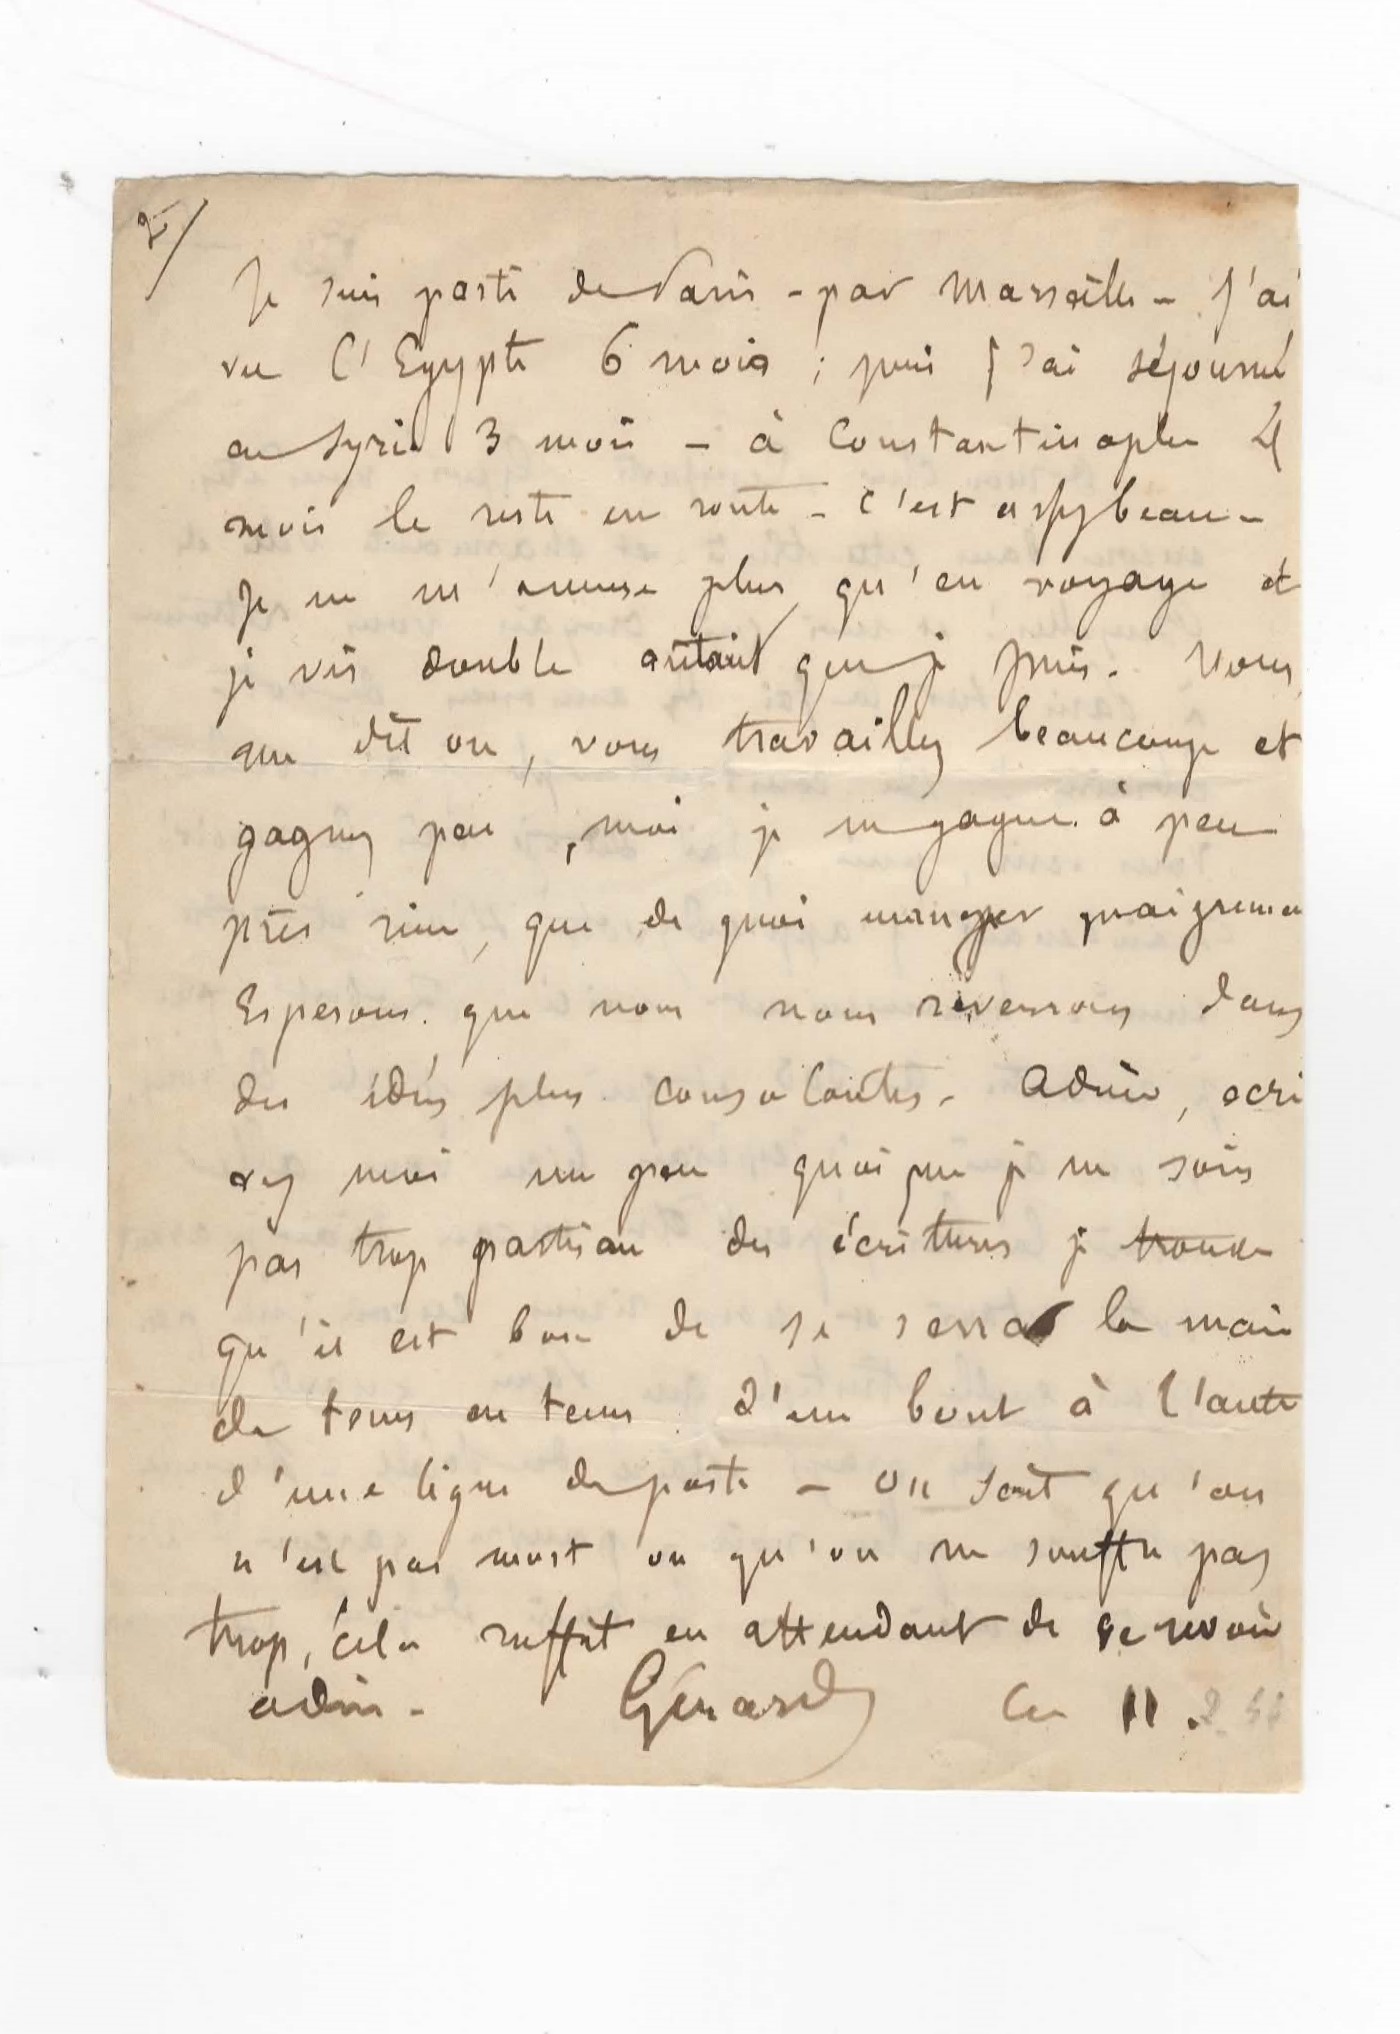 2/
Je suis parti de Paris - par Marseille - J'ai
vu l'Egypte 6 mois ; puis j'ai séjourné
en Syrie 3 mois - à Constantinople 4
mois le reste en route - c'est assez beau -
Je ne m'amuse plus qu'en voyage et
je vis double autant que je puis. Vous,
me dit on, vous travaillez beaucoup et
gagnez peu, moi je ne gagne à peu
près rien, que de quoi manger maigremen
Esperons que nous nous reverrons dans
des idées plus consolantes - Adieu, ecri
vez moi un peu quoique je ne sois
pas trop partisan des écritures je trouve
qu'il est bon de se serrer la main
de tems en tems d'un bout à l'autre
d'une ligne de poste - on sait qu'on
n'est pas mort ou qu'on ne souffre pas
trop, cela suffit en attendant de se revoir
adieu - Gérard Ce 11.